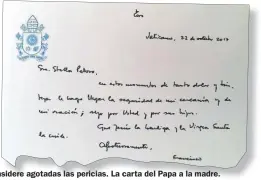 Vaticano, 22 de octubre 2017
Sra. Stella Peloso,
en estos momentos de tanto dolor y
le hago llegar la seguridad de mi cercanía y de
mi oración; rezo por Usted y por sus hijos.
Que Jesús la bendiga y la Virgen Santa
la cuide.
Afectuosamente,
Francisco
nsidere agotadas las pericias. La carta del Papa a la madre.